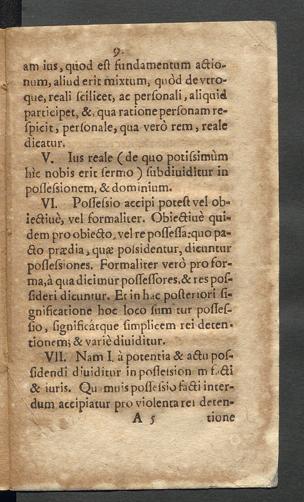 9.
am ius, quod est fundamentum actio-
num, aliud erit mixtum, quòd de vtro-
que, reali scilicet, ac personali, aliquid
participet, & qua ratione personam re-
spicit, personale, qua verò rem, reale
dicatur.
V. Ius reale (de quo potissimùm
hîc nobis erit sermo) subdiuiditur in
possessionem, & dominium.
VI. Possessio accipi potest vel ob-
iectiuè, vel formaliter. Obiectiuè qui-
dem pro obiecto, vel re possessa: quo pa-
cto prædia, quæ possidentur, dicuntur
possessiones. Formaliter verò pro for-
ma, à qua dicimur possessores, & res pos-
sideri dicuntur. Et in hac posteriori si-
gnificatione hoc loco sumitur posses-
sio, significátque simplicem rei deten-
tionem; & variè diuiditur.
VII. Nam I. à potentia & actu pos-
sidendi diuiditur in possessionem facti
& iuris. Quamuis possessio facti inter-
dum accipiatur pro violenta rei deten-
A 5 tione